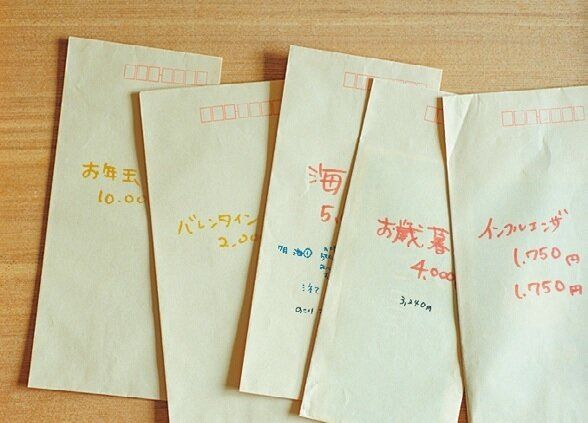 お年玉
10.00
バレンタイン
2.00
海
5.
7月 海①
お歳暮
4.000
3,240円
インフルエンザ
1.750円
1.750円